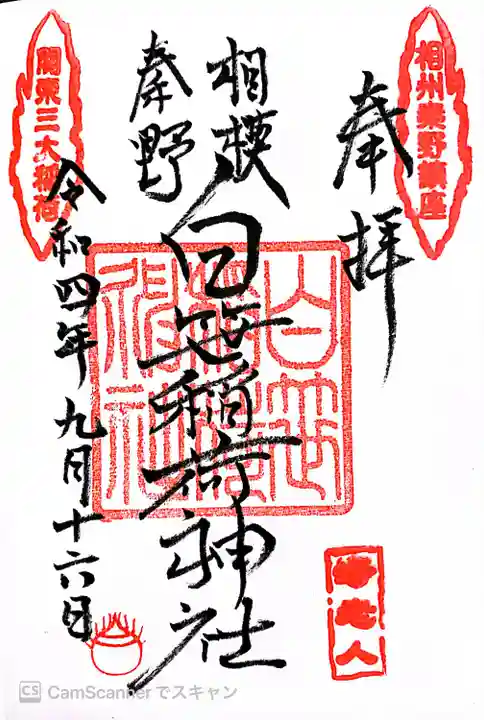 相州秦野鎮座
奉拝
相模
秦野
白笹稲荷神社
白笹稲荷神社
関東三大稲荷
令和四年九月十六日
CS CamScannerでスキャン